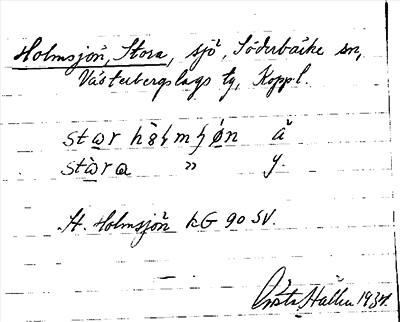 Holmsjön, Stora, sjö, Söderbärke sn,
Västerbergslags tg, Koppl.
star hò̀lmʃø̀n ä̆
stàra " y.
St. Holmsjön kG 90 SV.
Gösta Hallin 1934.